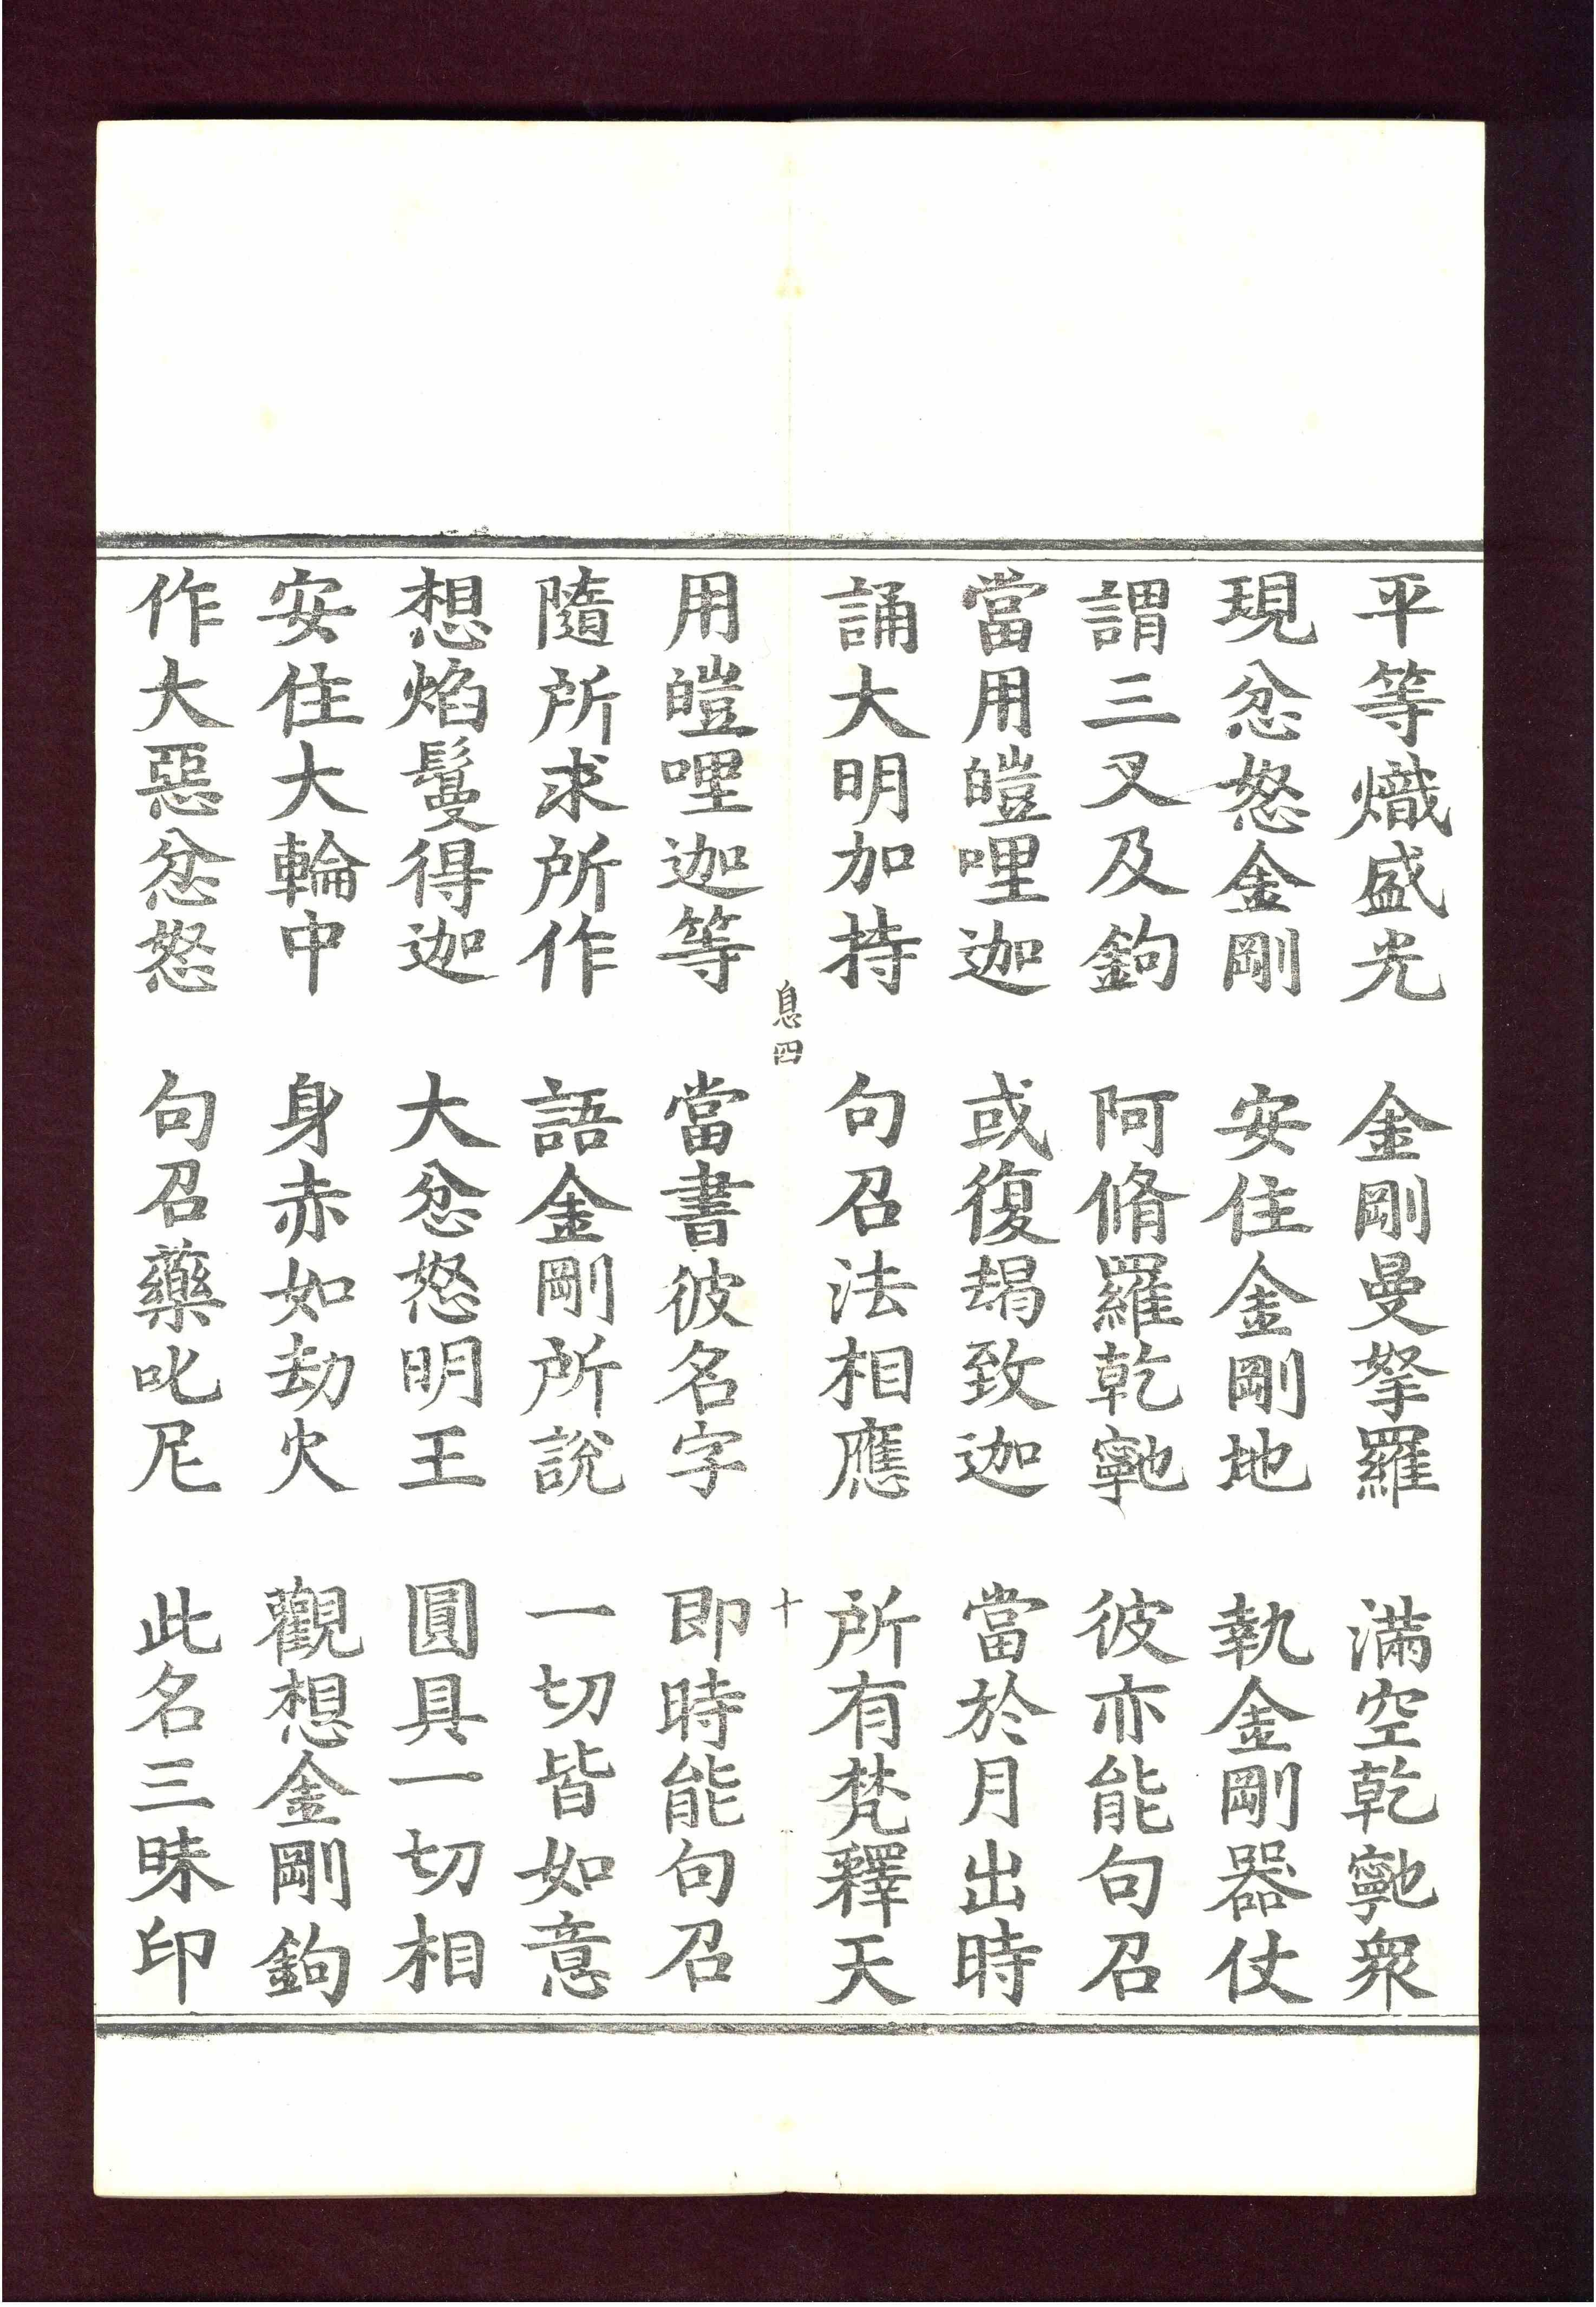 平等熾盛光　金剛曼拏羅　滿空乾𪗋衆
現忿怒金剛　安住金剛地　執金剛器仗
謂三叉及鉤　阿脩羅乾𪗋　彼亦能句召
當用皚哩迦　或復朅致迦　當於月出時
誦大明加持　句召法相應　所有梵釋天
息四　十
用皚哩迦等　當書彼名字　即時能句召
隨所求所作　語金剛所說　一切皆如意
想焰鬘得迦　大忿怒明王　圓具一切相
安住大輪中　身赤如劫火　觀想金剛鉤
作大惡忿怒　句召藥叱尼　此名三昧印